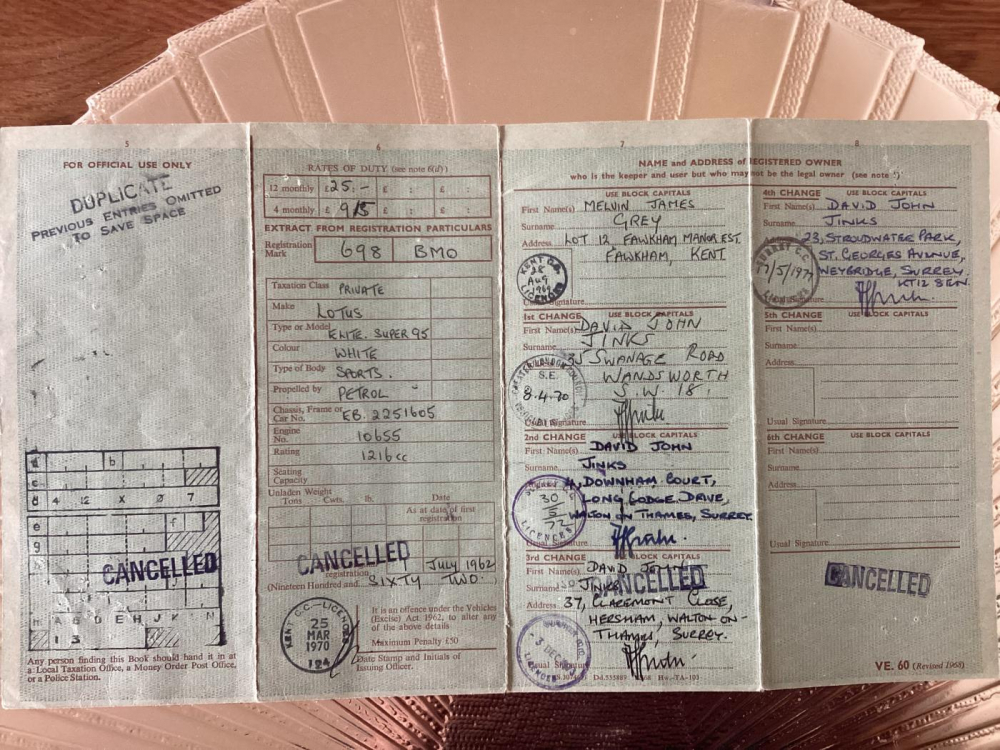 5
FOR OFFICIAL USE ONLY
DUPLICATE
PREVIOUS ENTRIES OMITTED
TO SAVE SPACE
d b
c
d 4 12 X Ø 7
e f
g
CANCELLED
H A B D E H J K N
1 3
Any person finding this Book should hand it in at
a Local Taxation Office, a Money Order Post Office,
or a Police Station.
6
RATES OF DUTY (see note 6(d))
12 monthly £25:- £ : £ :
4 monthly £ 9/5 £ : £ :
EXTRACT FROM REGISTRATION PARTICULARS
Registration
Mark 698 BMO
Taxation Class PRIVATE
Make LOTUS
Type or Model ELITE. SUPER 95
Colour WHITE
Type of Body SPORTS.
Propelled by PETROL
Chassis, Frame or
Car No. EB. 2251605
Engine
No. 10655
Rating 1216cc
Seating
Capacity
Unladen Weight
Tons Cwts. lb. Date
As at date of first
registration
CANCELLED
registration July 1962
(Nineteen Hundred and SIXTY TWO.
KENT C.C.-LICENCES
25
MAR
1970
124
It is an offence under the Vehicles
(Excise) Act 1962, to alter any
of the above details
Maximum Penalty £50
Date Stamp and Initials of
Issuing Officer.
7
NAME and ADDRESS of REGISTERED OWNER
who is the keeper and user but who may not be the legal owner (see note
USE BLOCK CAPITALS
First Name(s) MELVIN JAMES
Surname GREY
Address LOT 12, FAWKHAM MANOR EST
FAWKHAM, KENT
KENT C.C.
28
AUG
LICENCES
Signature
1st CHANGE USE BLOCK CAPITALS
First Name(s) DAVID JOHN
Surname JINKS
35 SWANAGE ROAD
WANDSWORTH
S.W. 18.
S.E.
8.4.70
Usual Signature
2nd CHANGE USE BLOCK CAPITALS
First Name(s) DAVID JOHN
Surname JINKS
4, DOWNHAM COURT,
LONG LODGE DRIVE,
WALTON ON THAMES, SURREY
SURREY C.C.
30
5
72
LICENCES
Usual Signature
3rd CHANGE USE BLOCK CAPITALS
First Name(s) DAVID JOHN
Surname JINKS
CANCELLED
Address 37, CLAREMONT CLOSE,
HERSHAM, WALTON ON-
THAMES, SURREY.
3 DEC
LICENCES
Usual Signature
8
4th CHANGE USE BLOCK CAPITALS
First Name(s) DAVID JOHN
Surname JINKS
23, STROUDWATER PARK,
ST. GEORGES AVENUE,
WEYBRIDGE, SURREY.
SURREY C.C.
5th CHANGE USE BLOCK CAPITALS
First Name(s)
Surname
Address
Usual Signature
6th CHANGE USE BLOCK CAPITALS
First Name(s)
Surname
Address
Usual Signature
CANCELLED
VE. 60 (Revised 1968)